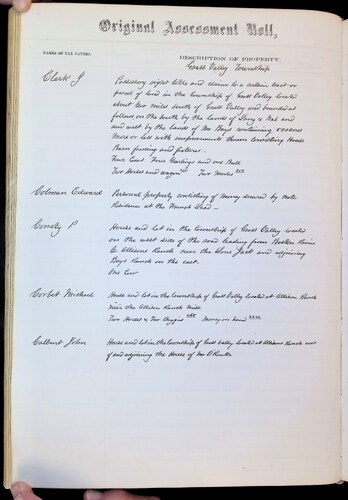 Original Assessment Roll,
NAMES OF TAX PAYERS.
DESCRIPTION OF PROPERTY:
Grass Valley Township
Clark J
Possessory right title and claim to a certain tract or
parcel of land in the township of Grass Valley located
about two miles south of Grass Valley and bounded as
follows on the north by the lands of and
and west by the lands of Mc Boys containing acres
More or less with improvements thereon consisting House
Barn fencing and fixtures.
Four Cows Four Yearlings and one Bull
Two Horses and wagon Two Mules
Colman Edward
Personal property consisting of money secured by note
Residence at the French Lead
Conely P
House and lot in the township of Grass Valley located
on the west side of the road leading from Boston Ravine
to Allisons Ranch near the and adjoining
Boys Ranch on the east.
One Cow
Corbet Michael
House and lot in the township of Grass Valley located at Allison Ranch
near the Allison Ranch Mill
Two Horses & Two Buggies Money on hand
Culbert John
House and lot in the township of Grass Valley located at Allisons Ranch west
of and adjoining the House of Wm O'Rourke